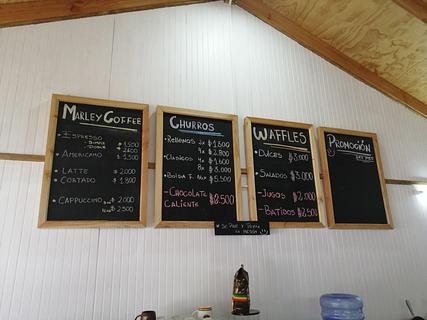 MARLEY COFFEE
ESPRESSO
- SIMPLE $1.500
- DOBLE
AMERICANO $1.500
LATTE $2.000
CORTADO $1.800
CAPPUCCINO $2.000
$2.500
CHURROS
RELLENOS 2x $1.500
4x $2.800
CLASICOS 4x $1.600
8x $3.000
BOLSA F. $5.500
- CHOCOLATE CALIENTE $2.500
WAFFLES
DULCES $3.000
SALADOS $3.000
- JUGOS $2.000
- BATIDOS $2.500
PROMOCIÓN
SE PIDE Y